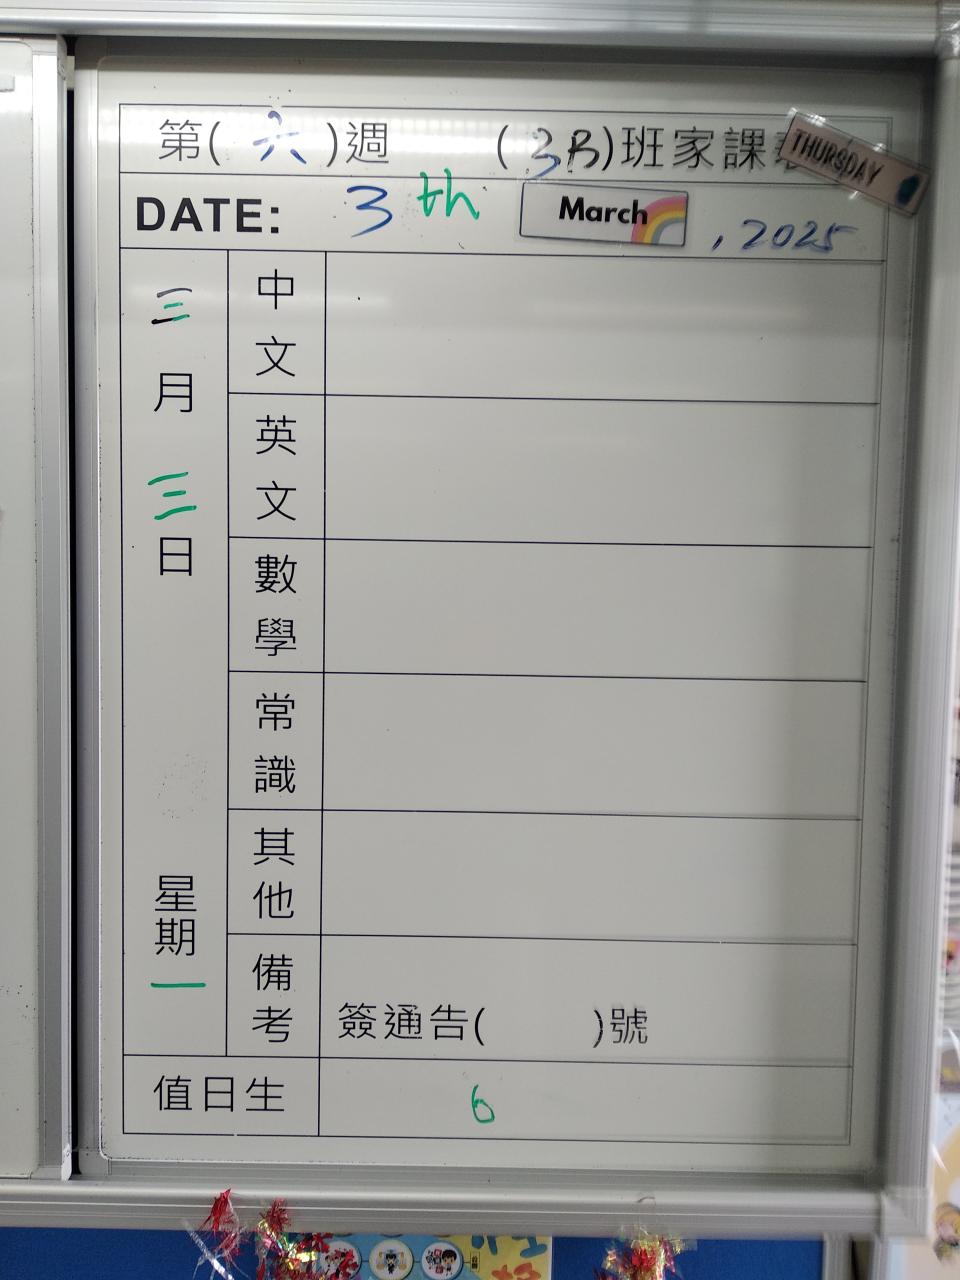 第( 六 )週 (3B)班家課
THURSDAY
DATE: 3th March , 2025
三月三日
星期一
中文
英文
數學
常識
其他
備考
簽通告( )號
值日生 6